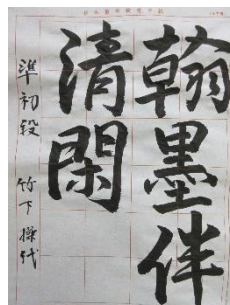 翰墨伴
清閑
準初段 竹下操代